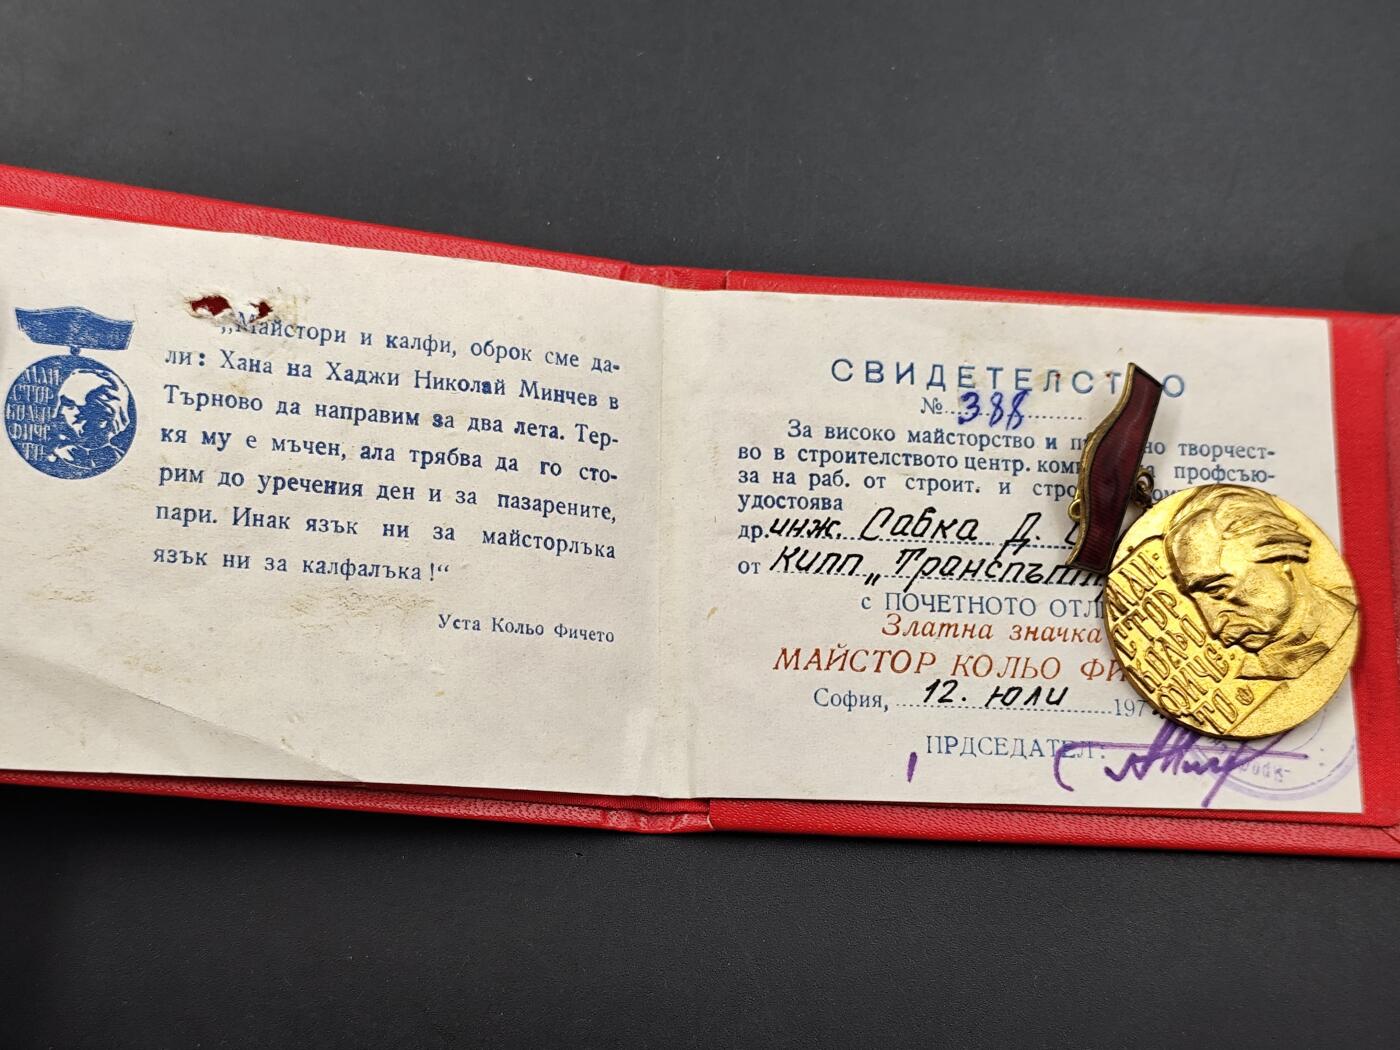 МАЙ
СТОР
КОЛЬО
ФИЧЕ
ТО
„Майстори и калфи, оброк сме да-
ли: Хана на Хаджи Николай Минчев в
Търново да направим за два лета. Тер-
кя му е мъчен, ала трябва да го сто-
рим до уречения ден и за пазарените,
пари. Инак язък ни за майсторлъка
язък ни за калфалъка!“
Уста Кольо Фичето
СВИДЕТЕЛСТВО
№ 388
За високо майсторство и творчест-
во в строителството центр. профсъю-
за на раб. от строит. и
удостоява
др. инж. Савка Д.
от КИПП „Транспъ
с ПОЧЕТНОТО ОТЛ
Златна значка
МАЙСТОР КОЛЬО ФИ
София, 12. ЮЛИ 197
ПРДСЕДАТЕЛ:
МАЙ-
СТОР
КОЛЬО
ФИЧЕ-
ТО